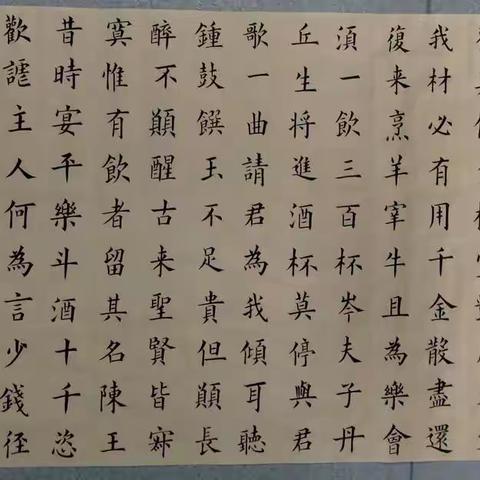 我材必有用千金散盡還
復来烹羊宰牛且為樂會
湏一飲三百杯岑夫子丹
丘生将進酒杯莫停與君
歌一曲請君為我傾耳聽
鍾鼓饌玉不足貴但願長
醉不願醒古来聖賢皆寂
寞惟有飲者留其名陳王
昔時宴平樂斗酒十千恣
歡謔主人何為言少錢径